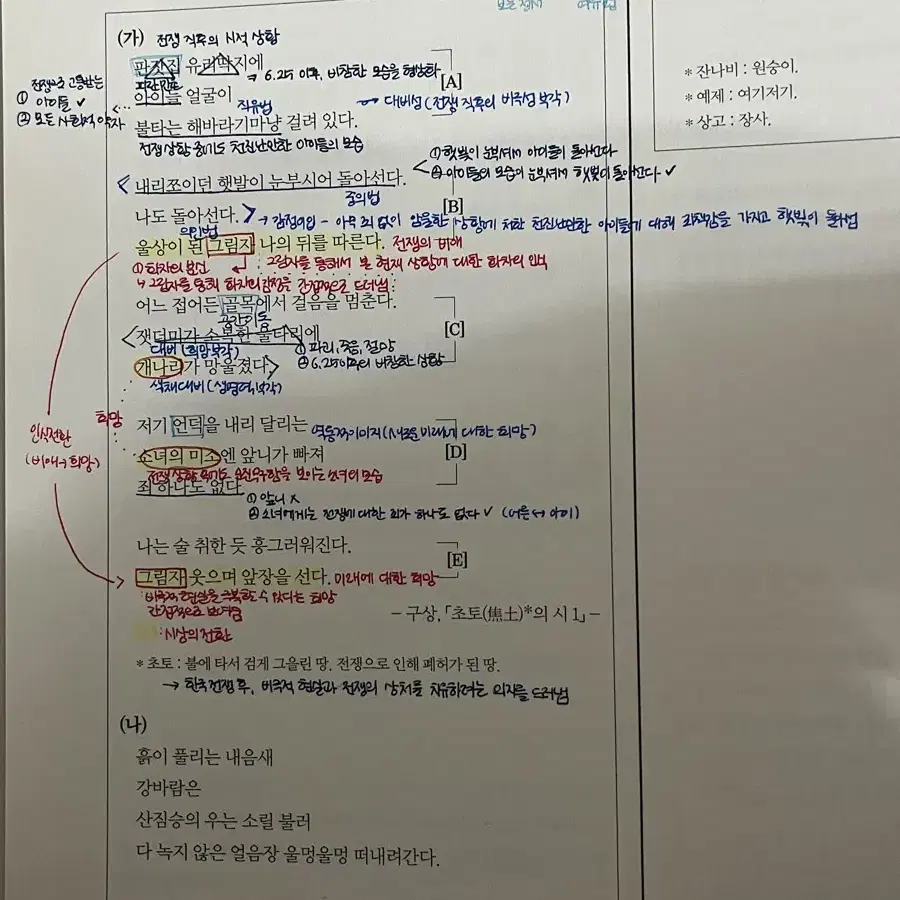 (가) 전쟁 직후의 시적 상황
판잣집 유리딱지에
→ 6.25 이후, 비참한 모습을 형상화
[A]
전쟁으로 고통받는
① 아이들 ✓
② 모든 사회적 약자
아이들 얼굴이
직유법
→ 대비성 (전쟁 직후의 비극성 부각)
불타는 해바라기마냥 걸려 있다.
전쟁 상황 중에도 천진난만한 아이들의 모습
① 햇빛이 눈부셔서 아이들이 돌아선다
내리쪼이던 햇발이 눈부시어 돌아선다.
② 아이들의 모습이 눈부셔서 햇빛이 돌아선다 ✓
중의법
[B]
나도 돌아선다.
→ 감정이입 - 아무 죄 없이 암울한 상황에 처한 천진난만한 아이들에 대해 죄책감을 가지고 햇빛이 돌아섬
의인법
울상이 된 그림자 나의 뒤를 따른다. 전쟁의 비애
① 화자의 분신
그림자를 통해서 본 현재 상황에 대한 화자의 인식
↳ 그림자를 통해 화자의 감정을 간접적으로 드러냄
어느 접어든 골목에서 걸음을 멈춘다.
공간이동
[C]
잿더미가 소복한 울타리에
대비 (희망 부각)
① 파괴, 죽음, 절망
② 6.25 이후의 비참한 상황
개나리가 망울졌다.
색채대비 (생명력 부각)
희망
저기 언덕을 내리 달리는
역동적이미지 (새로운 미래에 대한 희망)
인식전환
(비애→희망)
소녀의 미소엔 앞니가 빠져
[D]
전쟁 상황 속에도 순진무구함을 보이는 소녀의 모습
죄 하나도 없다.
① 앞니 X
② 소녀에게는 전쟁에 대한 죄가 하나도 없다 ✓ (어른 ↔ 아이)
나는 술 취한 듯 흥그러워진다.
[E]
그림자 웃으며 앞장을 선다. 미래에 대한 희망
: 비극적 현실을 극복할 수 있다는 희망
간접적으로 보여줌
- 구상, 「초토(焦土)*의 시 1」 -
: 시상의 전환
* 초토 : 불에 타서 검게 그을린 땅. 전쟁으로 인해 폐허가 된 땅.
→ 한국전쟁 후, 비극적 현실과 전쟁의 상처를 치유하려는 의지를 드러냄
(나)
흙이 풀리는 내음새
강바람은
산짐승의 우는 소릴 불러
다 녹지 않은 얼음장 울멍울멍 떠내려간다.
* 잔나비 : 원숭이.
* 예제 : 여기저기.
* 상고 : 장사.